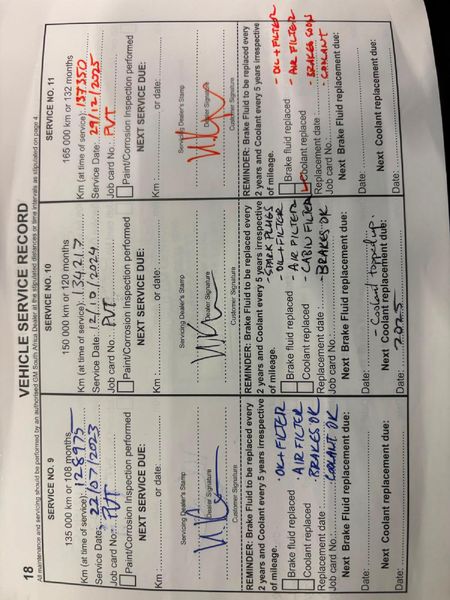 18
VEHICLE SERVICE RECORD
All maintenance and servicing should be performed by an authorised GM South Africa Dealer at the stipulated distances or time intervals as stipulated on page 4.
SERVICE NO. 9
135 000 km or 108 months
Km (at time of service): 128975
Service Date: 22/07/2023
Job card No.: PVT
Paint/Corrosion Inspection performed
NEXT SERVICE DUE:
Km
or date:
Servicing Dealer's Stamp
Dealer Signature
Customer Signature
REMINDER: Brake Fluid to be replaced every
2 years and Coolant every 5 years irrespective
of mileage.
- OIL + FILTER
Brake fluid replaced
- AIR FILTER
Coolant replaced
BRAKES OK
Replacement date:
COOLANT OK
Job card No.:
Next Brake Fluid replacement due:
Date:
Next Coolant replacement due:
Date:
SERVICE NO. 10
150 000 km or 120 months
Km (at time of service): 134217
Service Date: 12/10/2024
Job card No.: PVT
Paint/Corrosion Inspection performed
NEXT SERVICE DUE:
Km
or date:
Servicing Dealer's Stamp
Dealer Signature
Customer Signature
REMINDER: Brake Fluid to be replaced every
2 years and Coolant every 5 years irrespective
of mileage.
- SPARK PLUGS
- OIL + FILTER
Brake fluid replaced
- AIR FILTER
Coolant replaced
- CABIN FILTER
Replacement date:
- BRAKES OK
Job card No.:
Next Brake Fluid replacement due:
Date:
- Coolant topped up.
Next Coolant replacement due:
Date:
SERVICE NO. 11
165 000 km or 132 months
Km (at time of service): 137350
Service Date: 29/12/2025
Job card No.: PVT
Paint/Corrosion Inspection performed
NEXT SERVICE DUE:
Km
or date:
Servicing Dealer's Stamp
Dealer Signature
Customer Signature
REMINDER: Brake Fluid to be replaced every
2 years and Coolant every 5 years irrespective
of mileage.
- OIL + FILTER
Brake fluid replaced
- AIR FILTER
Coolant replaced
- BRAKES
Replacement date:
- COOLANT
Job card No.:
Next Brake Fluid replacement due:
Date:
Next Coolant replacement due:
Date: